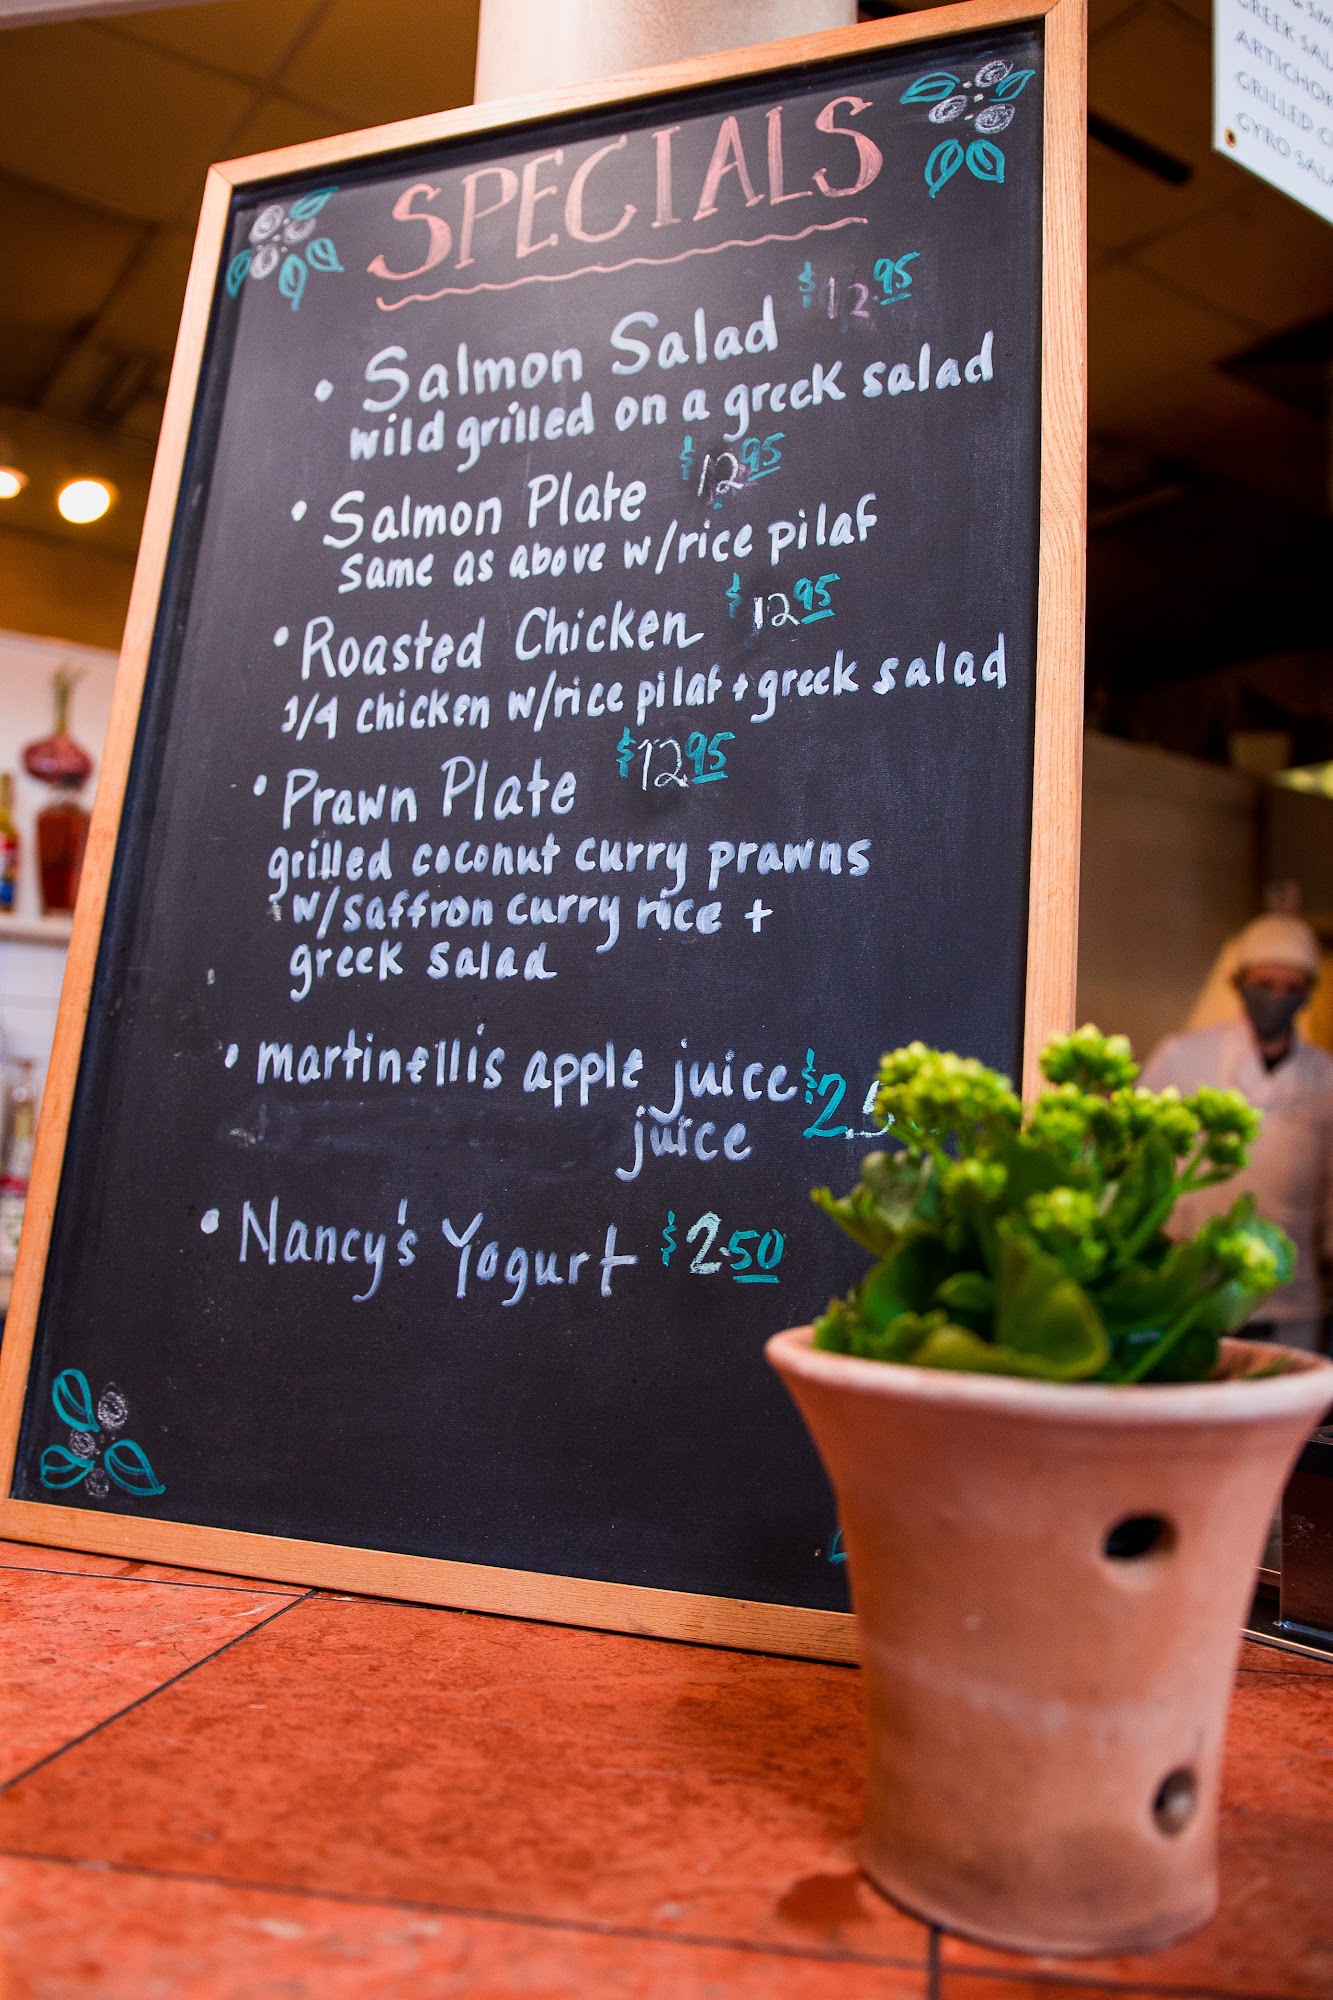 SPECIALS
• Salmon Salad $12.95
wild grilled on a greek salad
• Salmon Plate $12.95
same as above w/rice pilaf
• Roasted Chicken $12.95
1/4 chicken w/rice pilaf + greek salad
• Prawn Plate $12.95
grilled coconut curry prawns
w/saffron curry rice +
greek salad
• martinellis apple juice $2.5
juice
• Nancy's Yogurt $2.50
GREEK
GRILLED
GYRO